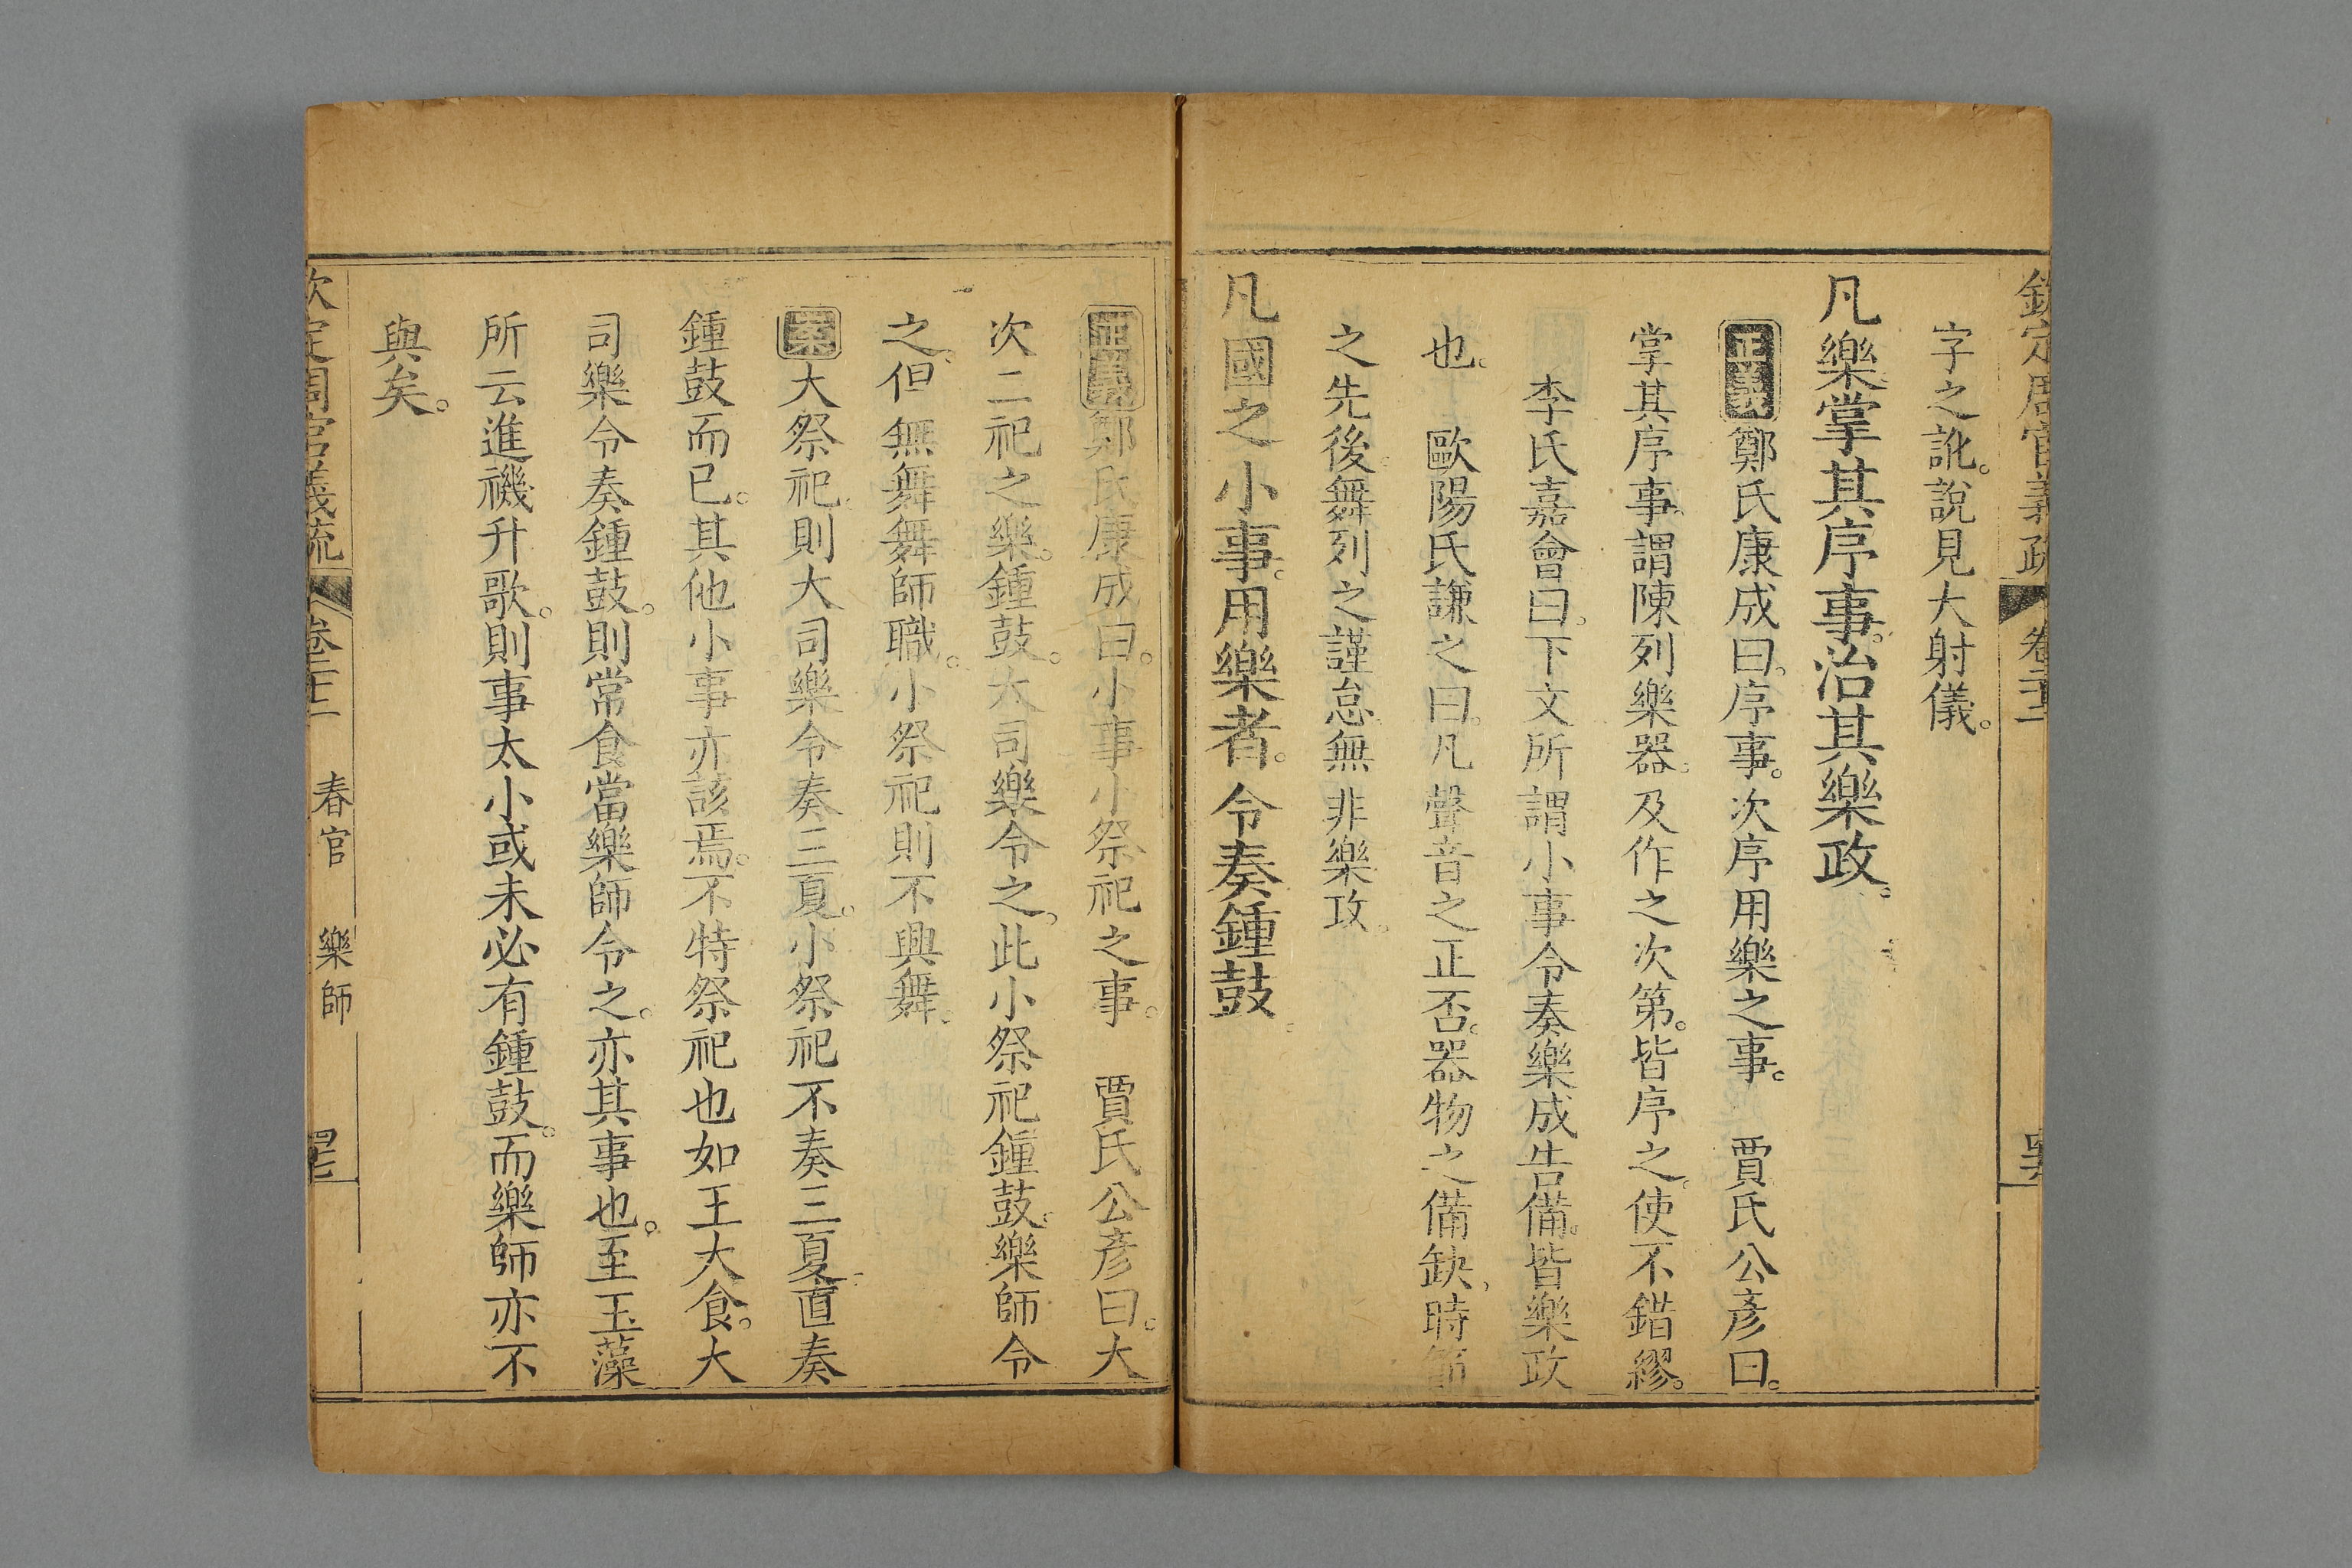 欽定周官義疏 卷二十二
字之訛。說見大射儀。
凡樂掌其序事。治其樂政。
正義鄭氏康成曰。序事。次序用樂之事。 賈氏公彥曰。
掌其序事。謂陳列樂器。及作之次第。皆序之。使不錯繆。
李氏嘉會曰。下文所謂小事令奏樂成告備。皆樂政
也。 歐陽氏謙之曰。凡聲音之正否。器物之備缺。時節
之先後。舞列之謹怠。無非樂政。
凡國之小事。用樂者。令奏鍾鼓。
正義鄭氏康成曰。小事小祭祀之事。 賈氏公彥曰。大
次二祀之樂。鍾鼓。大司樂令之。此小祭祀鍾鼓。樂師令
之。但無舞。舞師職。小祭祀則不興舞。
案大祭祀。則大司樂令奏三夏。小祭祀不奏三夏。直奏
鍾鼓而已。其他小事亦該焉。不特祭祀也如王大食。大
司樂令奏鍾鼓。則常食當樂師令之。亦其事也。至玉藻
所云進禨升歌。則事太小或未必有鍾鼓。而樂師亦不
與矣。
欽定周官義疏 卷二十二 春官 樂師